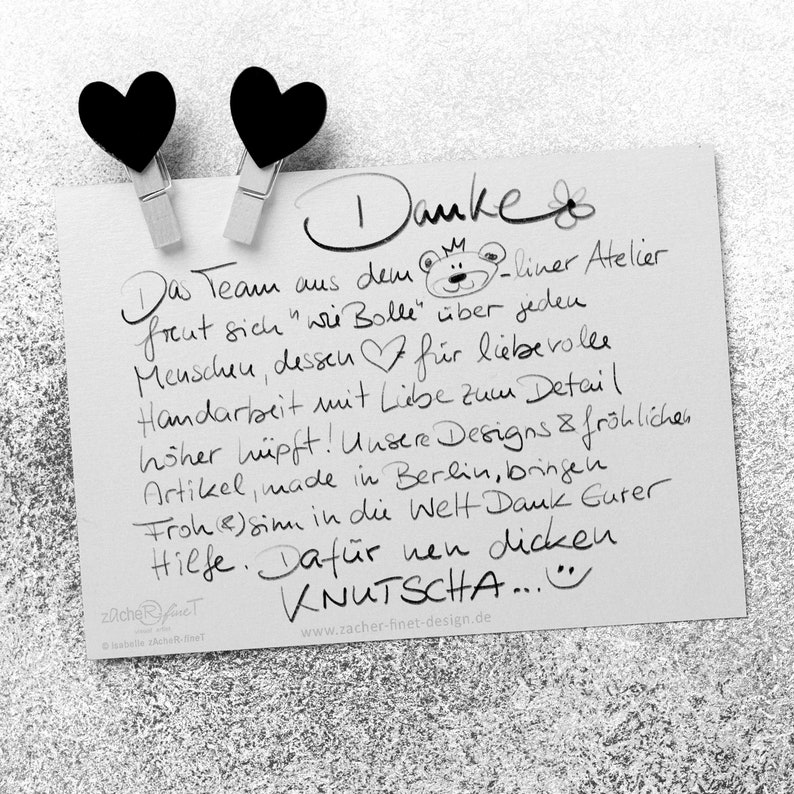 Danke
Das Team aus dem -liner Atelier
freut sich "wie Bolle" über jeden
Menschen, dessen für liebevolle
Handarbeit mit Liebe zum Detail
höher hüpft! Unsere Designs & fröhlichen
Artikel, made in Berlin, bringen
Froh(&)sinn in die Welt Dank Eurer
Hilfe. Dafür nen dicken
KNUTSCHA...
zAcheR-fineT
www.zacher-finet-design.de
© Isabelle zAcheR-fineT